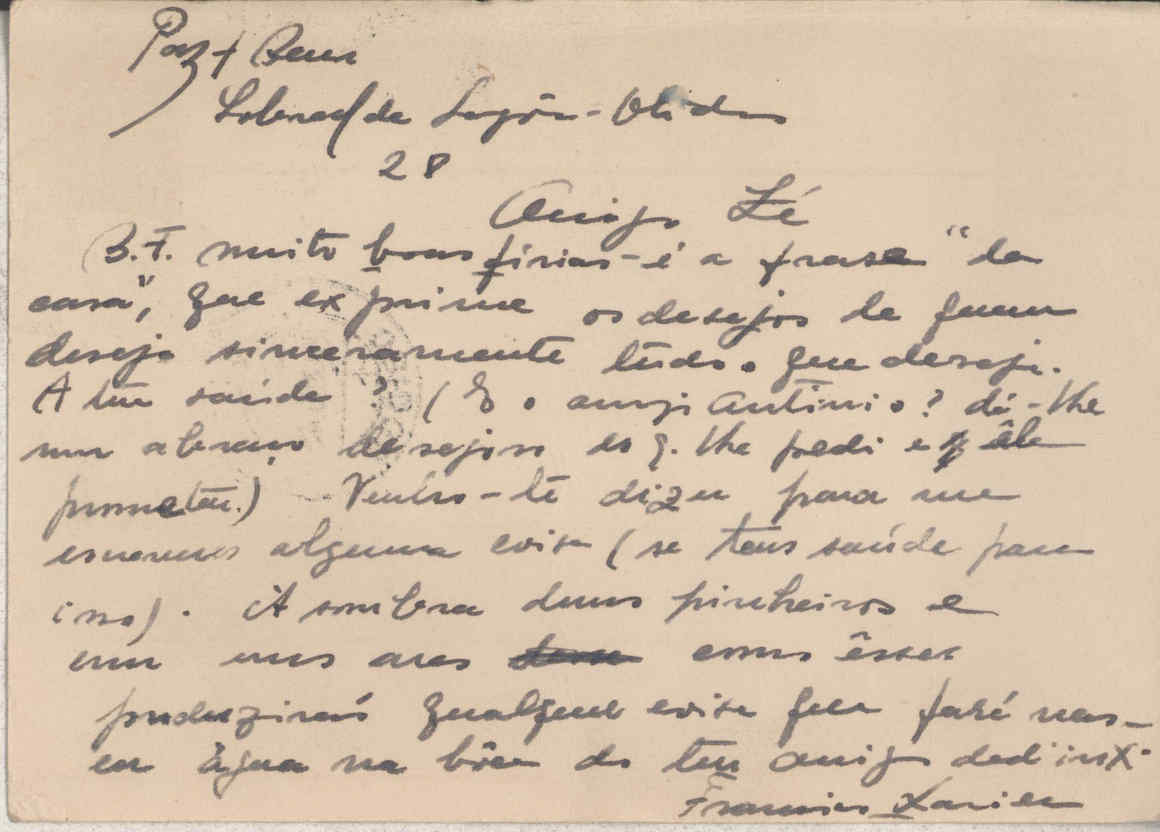 Paz + Bem
Sobral da Lagôa - Óbidos
28
Amigo Zé
B.F. muito boas férias - é a frase "da
casa", que exprime os desejos de quem
deseja sinceramente tudo o que deseja.
A tua saúde? (E o amigo António? dá-lhe
um abraço desejoso do q. lhe pedi e êle
prometeu.) Venho-te dizer para me
escreveres alguma coisa (se tens saúde para
isso). À sombra duns pinheiros e
com uns ares como êsses
produzirás qualquer coisa que fará nas-
cer água na bôca do teu amigo
Francisco Xavier